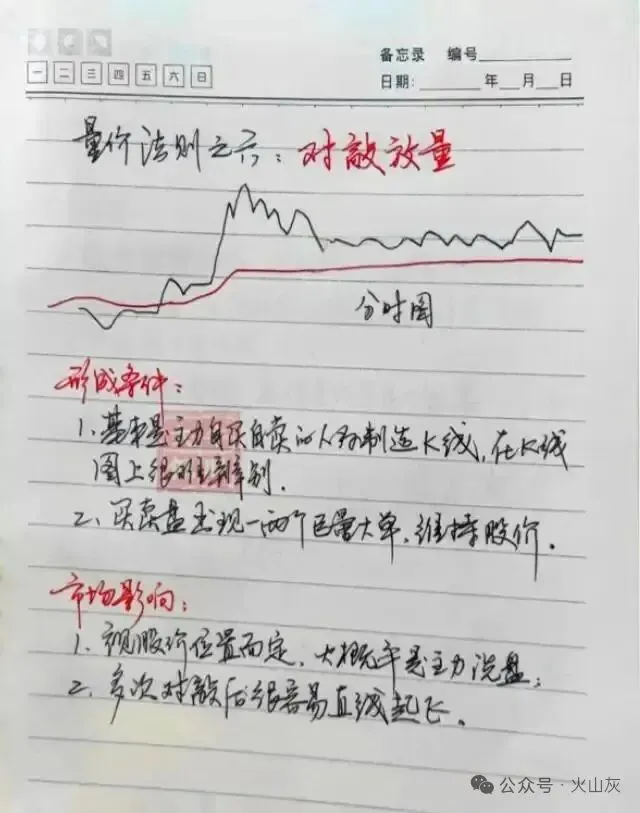 备忘录 编号
一 二 三 四 五 六 日
日期: 年 月 日
量价法则之六：对敲放量
分时图
形成条件：
1、基本是主力自买自卖的人为制造K线，在K线
图上很难辨别．
2、买卖盘出现一两个巨量大单，维持股价．
市场影响：
1、视股价位置而定，大概率是主力洗盘；
2、多次对敲后很容易直线起飞．
公众号·火山灰